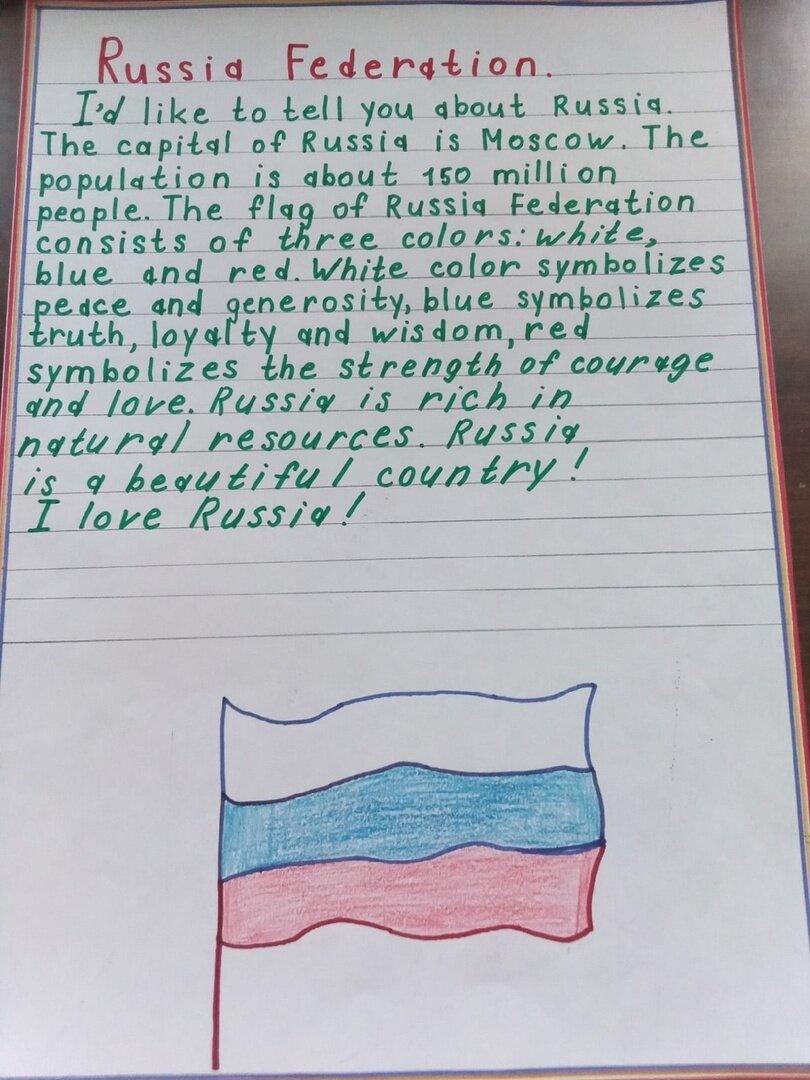 Russia Federation.
I'd like to tell you about Russia.
The capital of Russia is Moscow. The
population is about 150 million
people. The flag of Russia Federation
consists of three colors: white,
blue and red. White color symbolizes
peace and generosity, blue symbolizes
truth, loyalty and wisdom, red
symbolizes the strength of courage
and love. Russia is rich in
natural resources. Russia
is a beautiful country!
I love Russia!